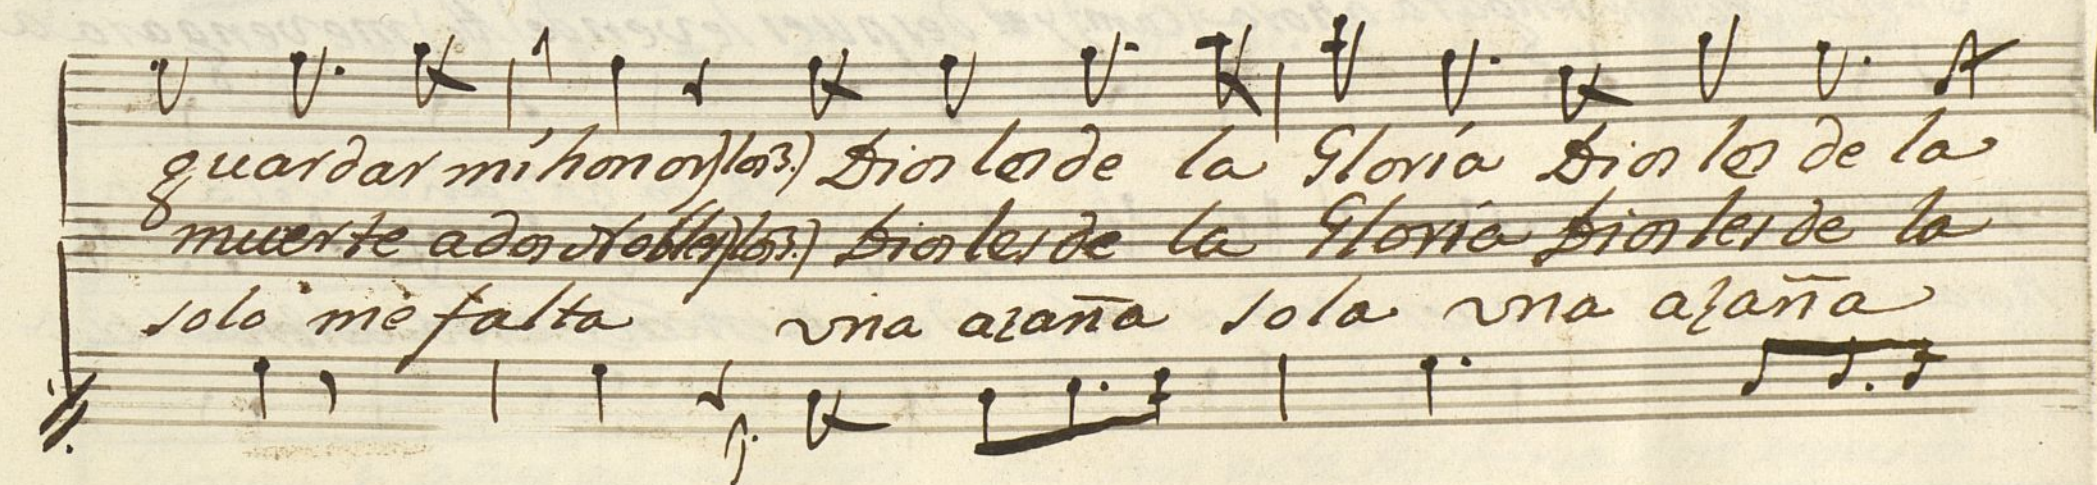 guardar mi honor) los 3.) Dios les de la Gloria Dios les de la
muerte a dos Nobles) los 3.) Dios les de la Gloria Dios les de la
solo me falta una azaña sola una azaña